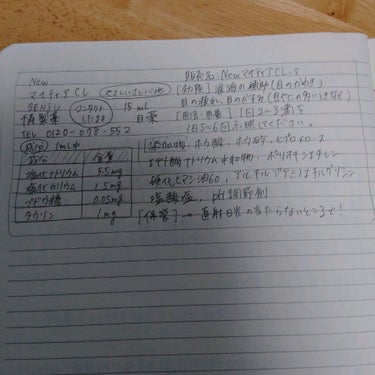 New
マイティア CL
SENJU 15 ml
千寿製薬 コンタクトしたまま 目薬
TEL 0120-078-552
成分 1ml中
成分 含量
塩化ナトリウム 5.5mg
塩化カリウム 1.5mg
ブドウ糖 0.05mg
タウリン 1mg
販売名: New マイティア CL-S
[効能] 涙液の補助(目のかわき)
目の疲れ、目のかすみ(目やにの多いときなど)
[用法・用量] 1回2~3滴を
1日5~6回点眼してください。
添加物: ホウ酸、ホウ砂、ヒプロメロース
エデト酸ナトリウム水和物、ポリオキシエチレン
硬化ヒマシ油60、アルキルジアミノエチルグリシン
塩酸塩、pH調節剤
[保管] → 直射日光の当たらないところで!